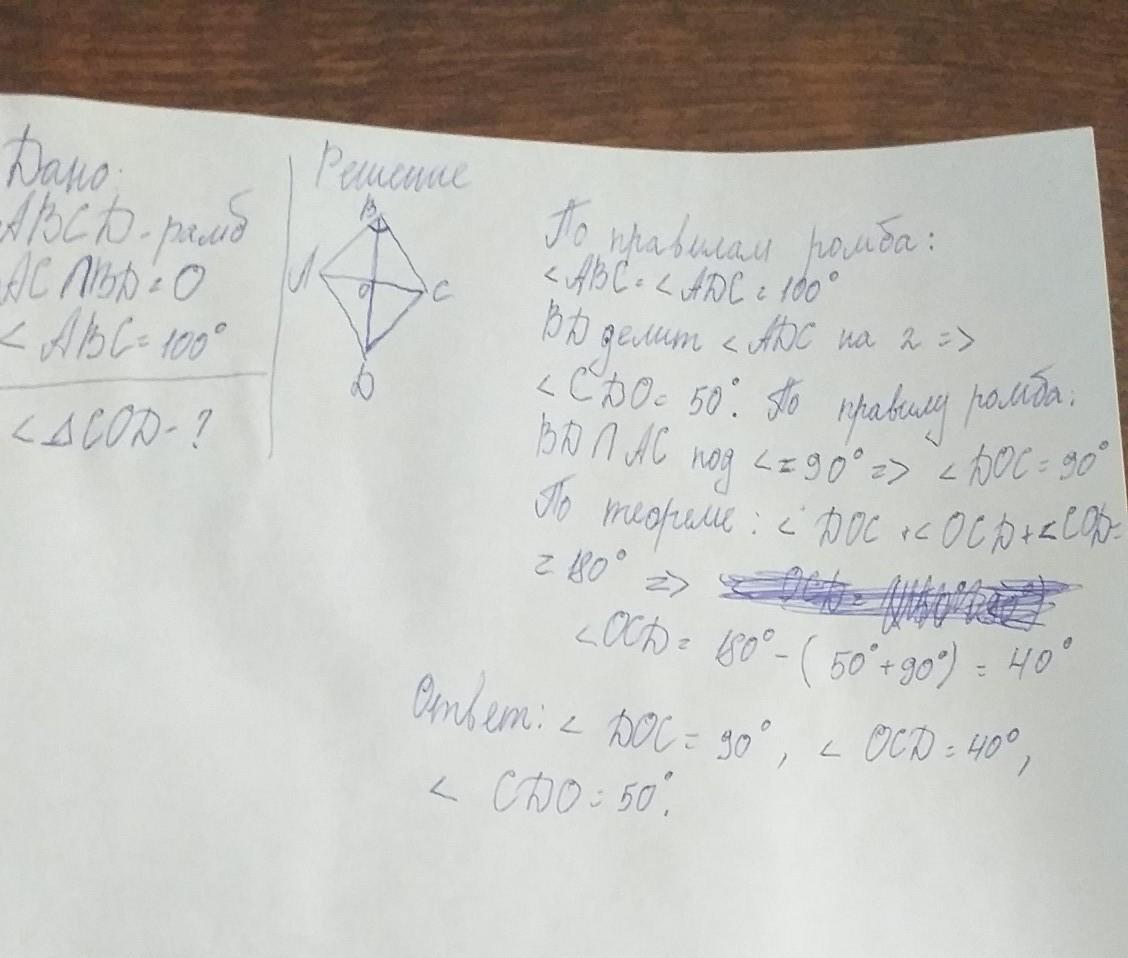 Дано:
ABCD - рамб
AC ∩ BD = O
< ABC = 100°
< △COD - ?
Решение
B
A
O
C
D
По правилам ромба:
< ABC = < ADC = 100°
BD делит < ADC на 2 =>
< CDO = 50°. По правилу ромба:
BD ∩ AC под < = 90° => < DOC = 90°
По теореме: < DOC + < OCD + < COD =
= 180° =>
< OCD = 180° - (50° + 90°) = 40°
Ответ: < DOC = 90°, < OCD = 40°,
< CDO = 50°.